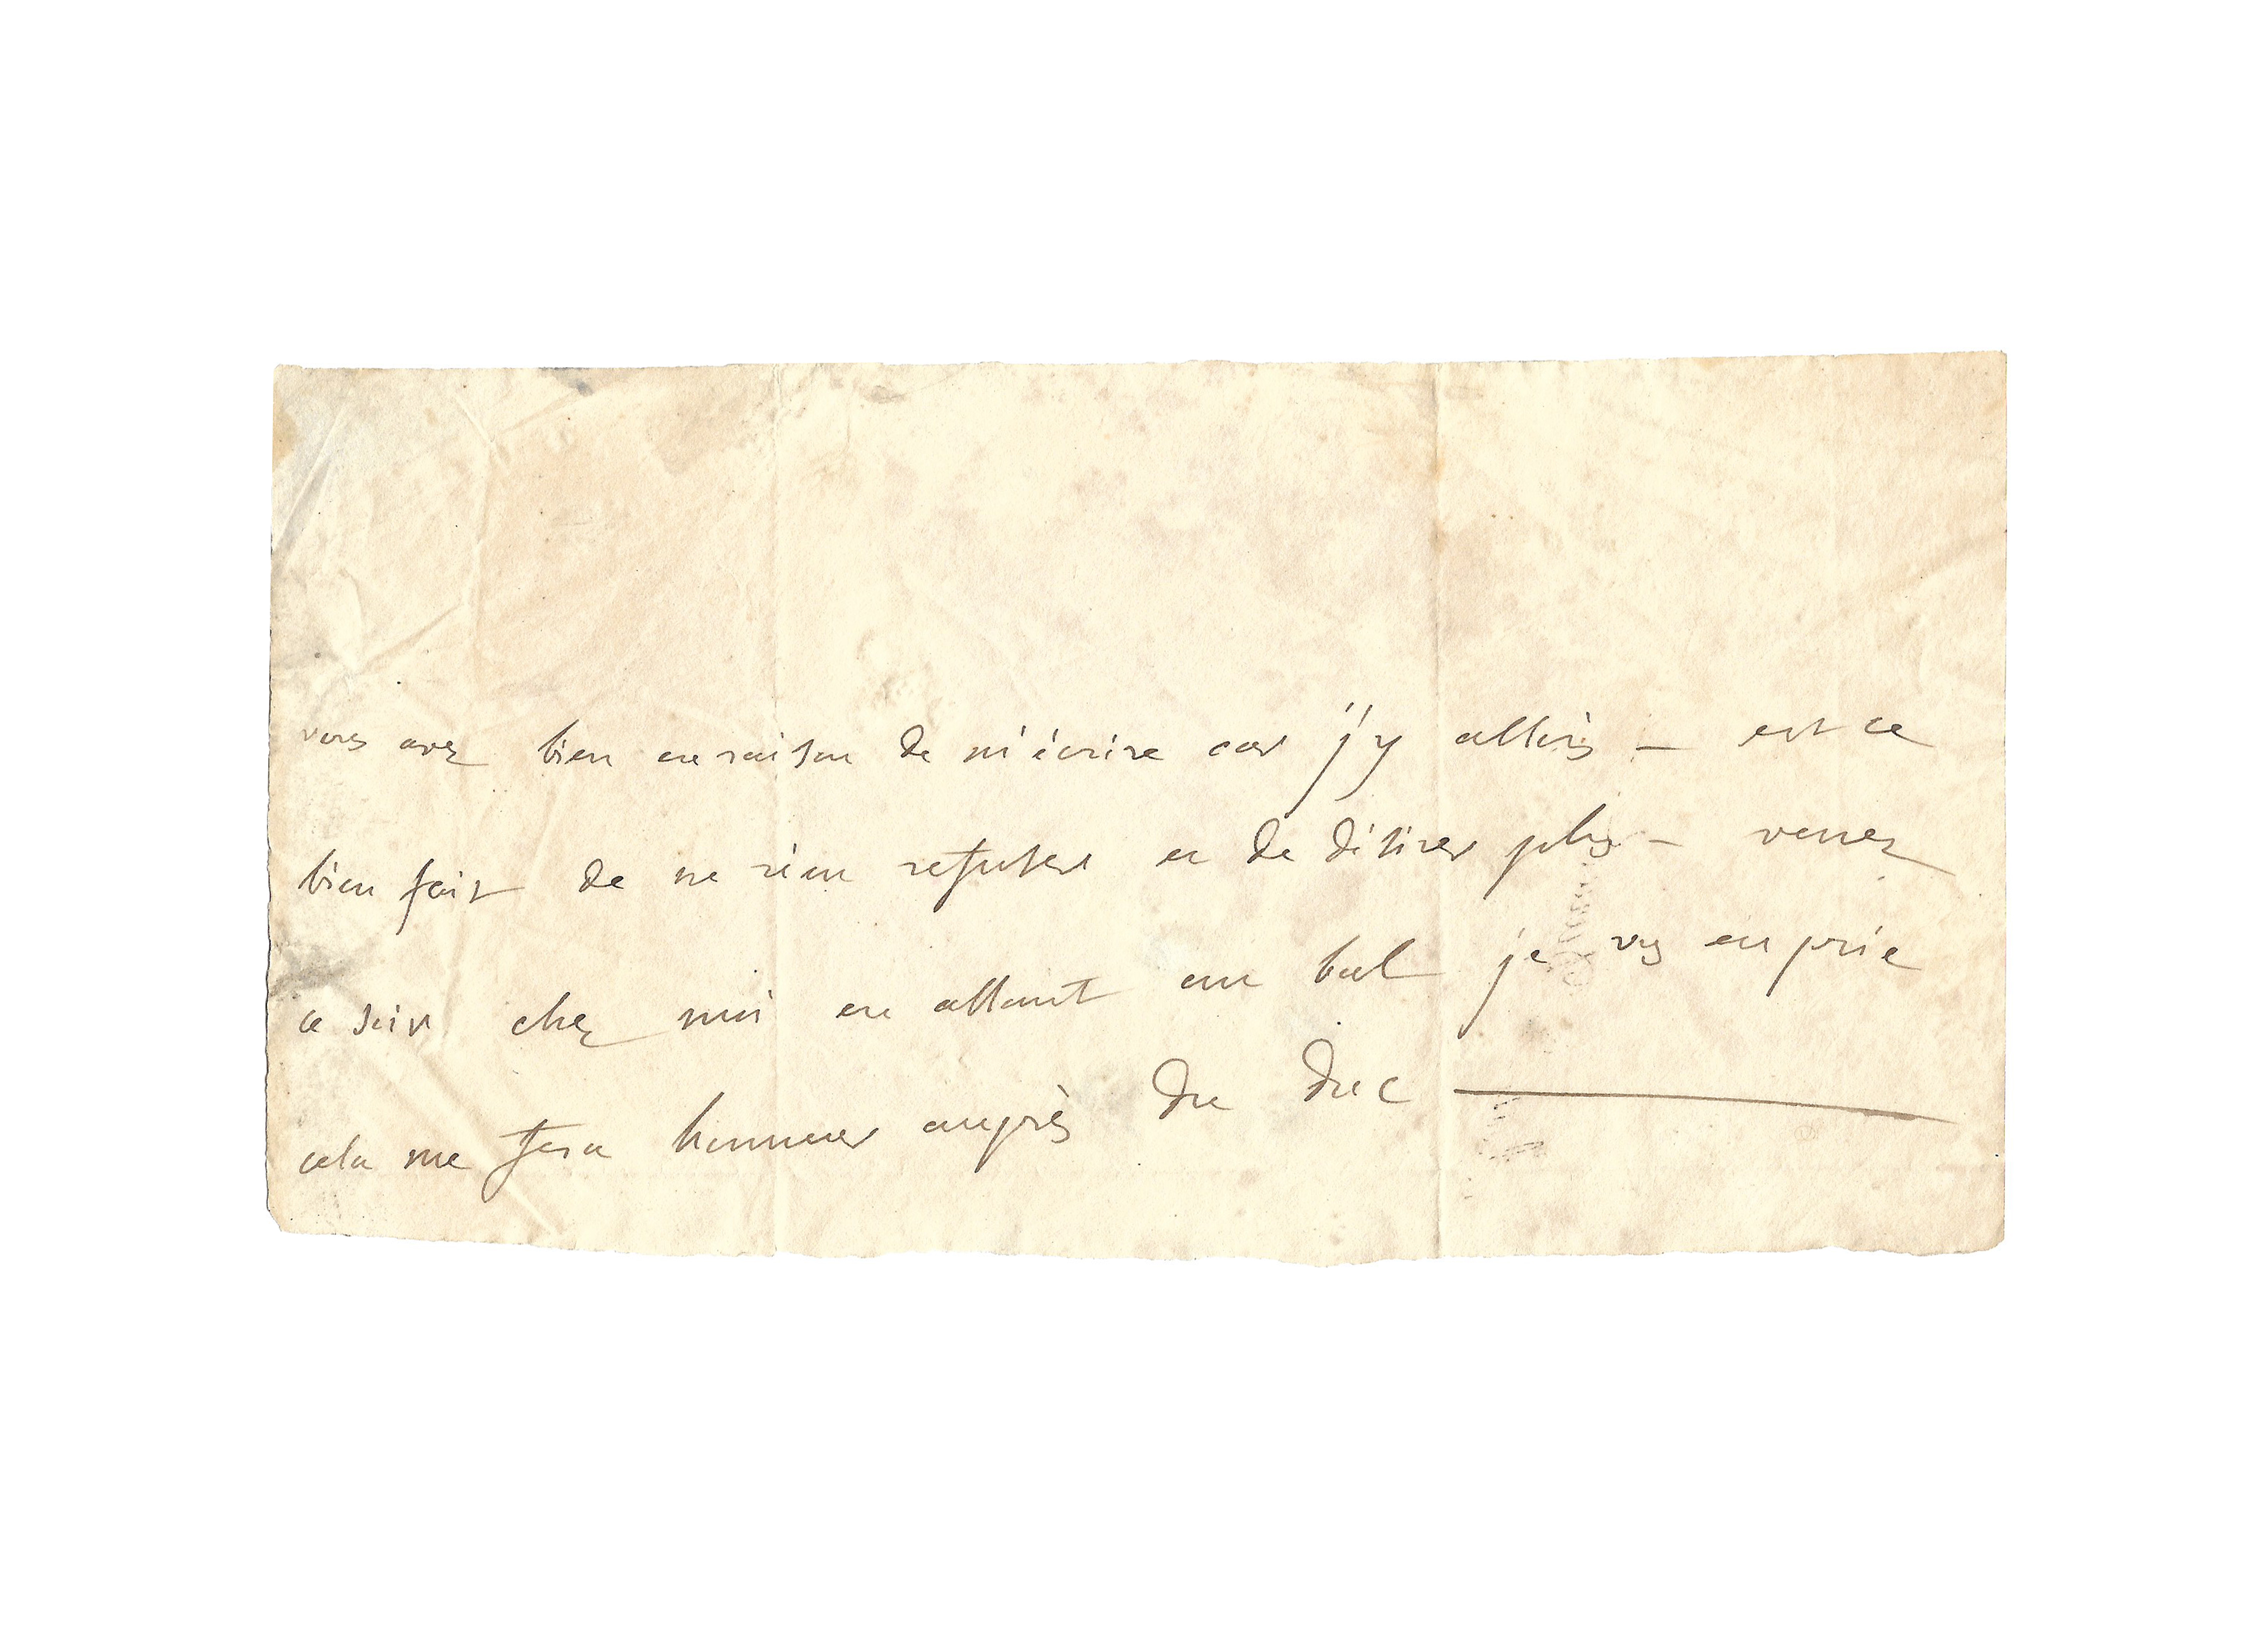 vous avez bien eu raison de m'écrire car j'y allais — est ce
bien fait de ne rien refuser et de désirer plus — venez
ce soir chez moi en allant au bal je vs en prie
cela me fera honneur auprès du duc —